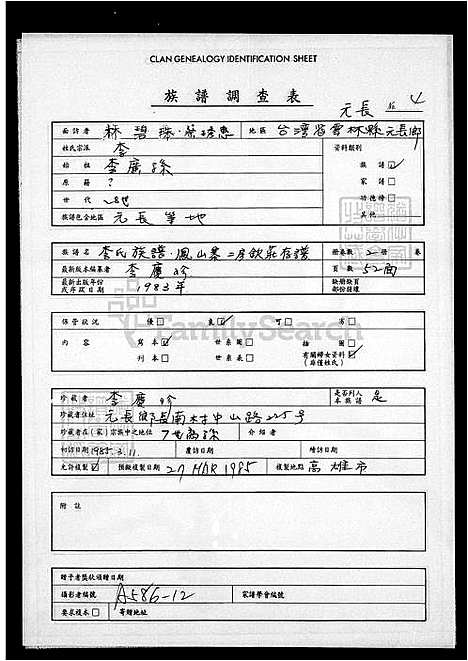 CLAN GENEALOGY IDENTIFICATION SHEET
族譜調查表
元長 4
面訪者 林碧珠 地區 台灣省雲林縣元長鄉
姓氏宗派 李 資料類別
始祖 李廣孫 族譜 ✓
原籍 ? 家譜 □
世代 功德榜 □
族譜包含地區 元長等地 其他
族譜名 李氏族譜·鳳山寨二房飲莊存譜 冊卷數 卷
最新版本編纂者 李慶珍 頁數 52面
最新出版年份或存放日期 1983年 缺頭缺頁部份殘壞
保管狀況 優 □ 良 ✓ 可 □ 劣 □
內容 寫本 ✓ 世系圖 □ 插圖 □
刊本 □ 世系表 □ 有關婦女資料 □ (非僅姓氏)
FamilySearch
珍藏者 李慶珍 是否列入本族譜 是
珍藏者住址 元長鄉長南村中山路225号
珍藏者在(家)宗族中之地位 介紹者
初訪日期 1985.3.11 覆訪日期 續訪日期
允許複製 ✓ 預擬複製日期 27 MAR 1985 複製地點 高雄市
附註
贈予者獎狀頒贈日期
攝影者編號 A586-12 家譜學會編號
要求複本 □ 寄贈地址